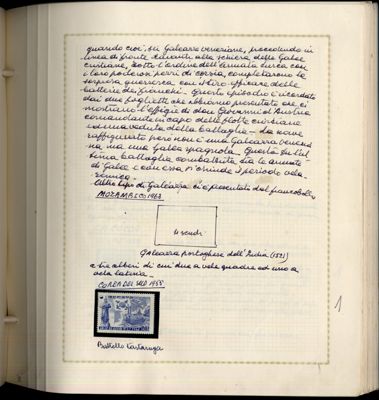 quando cioè, sei Galeazze veneziane, procedendo in
linea di fronte davanti alla schiera delle Galee
cristiane, sotto l'ordine dell'armata turca con
i loro poderosi pezzi di corsia, completarono la
sorpresa guerresca con il tiro efficace delle
batterie dei fianchi. Questo episodio è ricordato
dai due foglietti che abbiamo presentato che ci
mostrano l'effigie di don Giovanni d'Austria
comandante in capo delle flotte cristiane
con una veduta della battaglia - La nave
raffigurata però non è una Galeazza veneziana
ma una Galea spagnola. Questa fu l'ul
tima battaglia combattuta tra le armate
di Galee e con essa si chiude il periodo
remico.
Altro tipo di Galeazza ci è presentato dal francobollo
MOZAMBICO 1963
4 scudi
Galeazza portoghese dell'India (1521)
a tre alberi di cui due a vele quadre ed uno a
vela latina.
COREA DEL SUD 1955
Battello Tartaruga
1